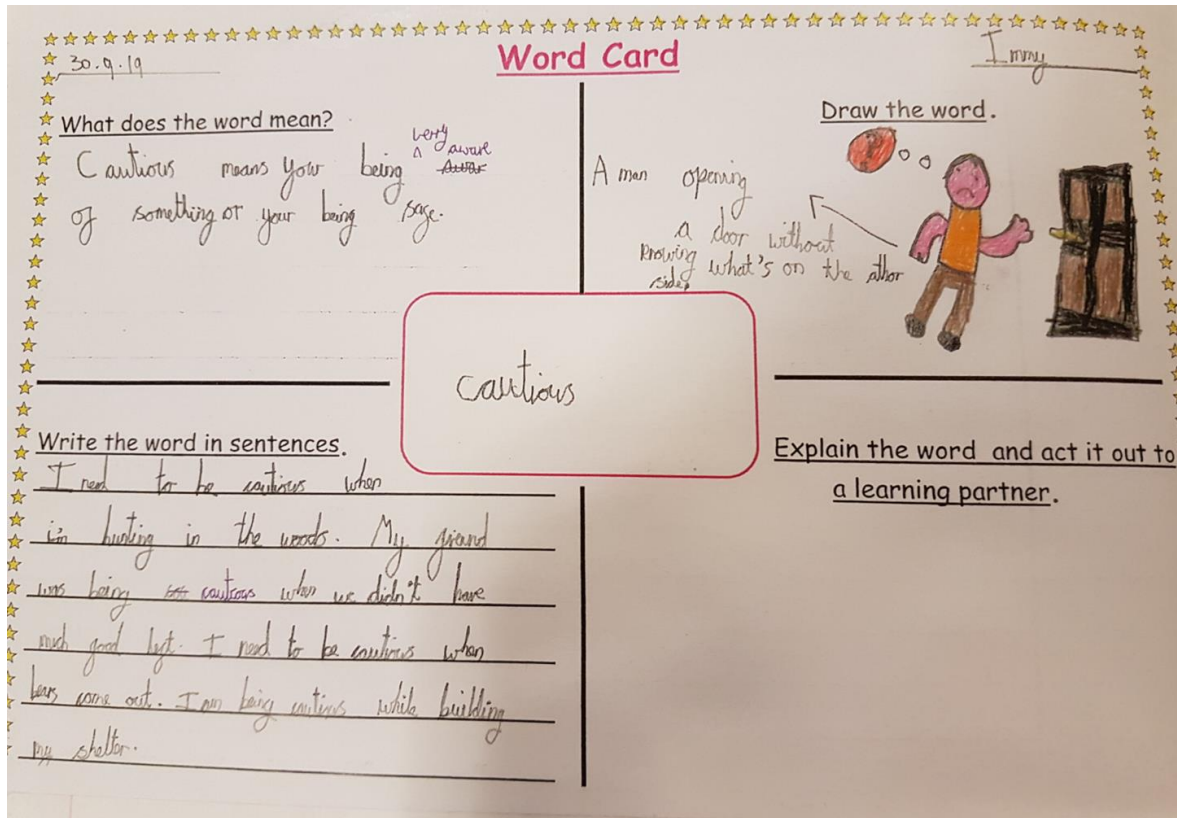 30.9.19
Word Card
Immy
What does the word mean?
Cautious means your being verry aware
of something or your being safe.
Draw the word.
A man opening
a door without
knowing what's on the athor
side.
cautious
Write the word in sentences.
I need to be cautious when
i'm hunting in the woods. My friand
was being cautious when we didn't have
much good left. I need to be cautious when
bears come out. I am being cautious while building
my shelter.
Explain the word and act it out to
a learning partner.